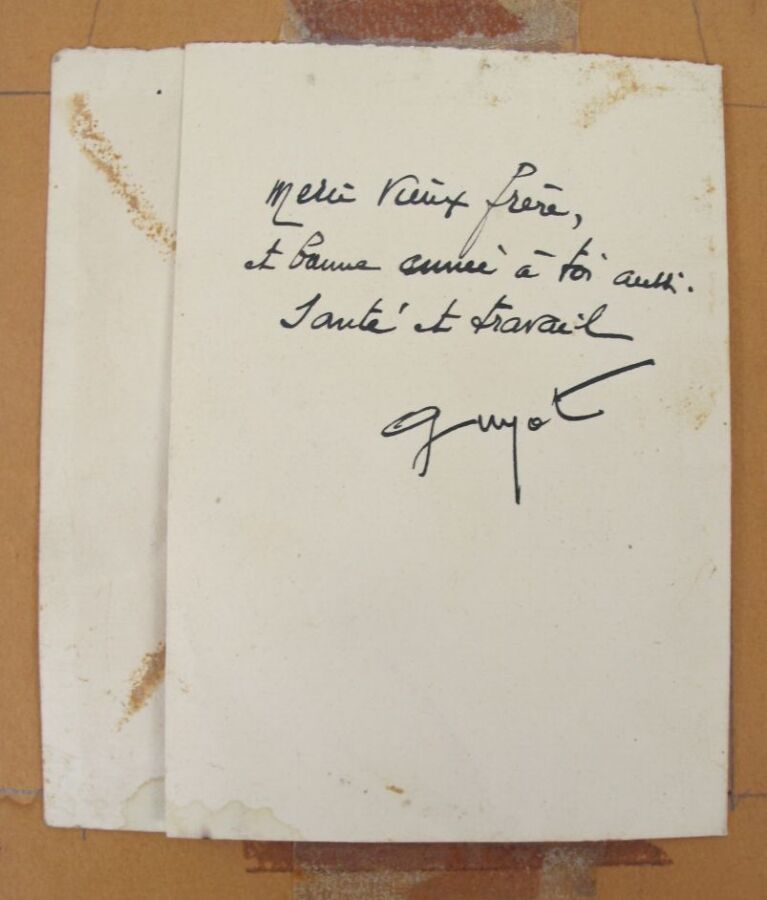 Merci vieux frère,
et bonne année à toi aussi.
Santé et travail
Guyot